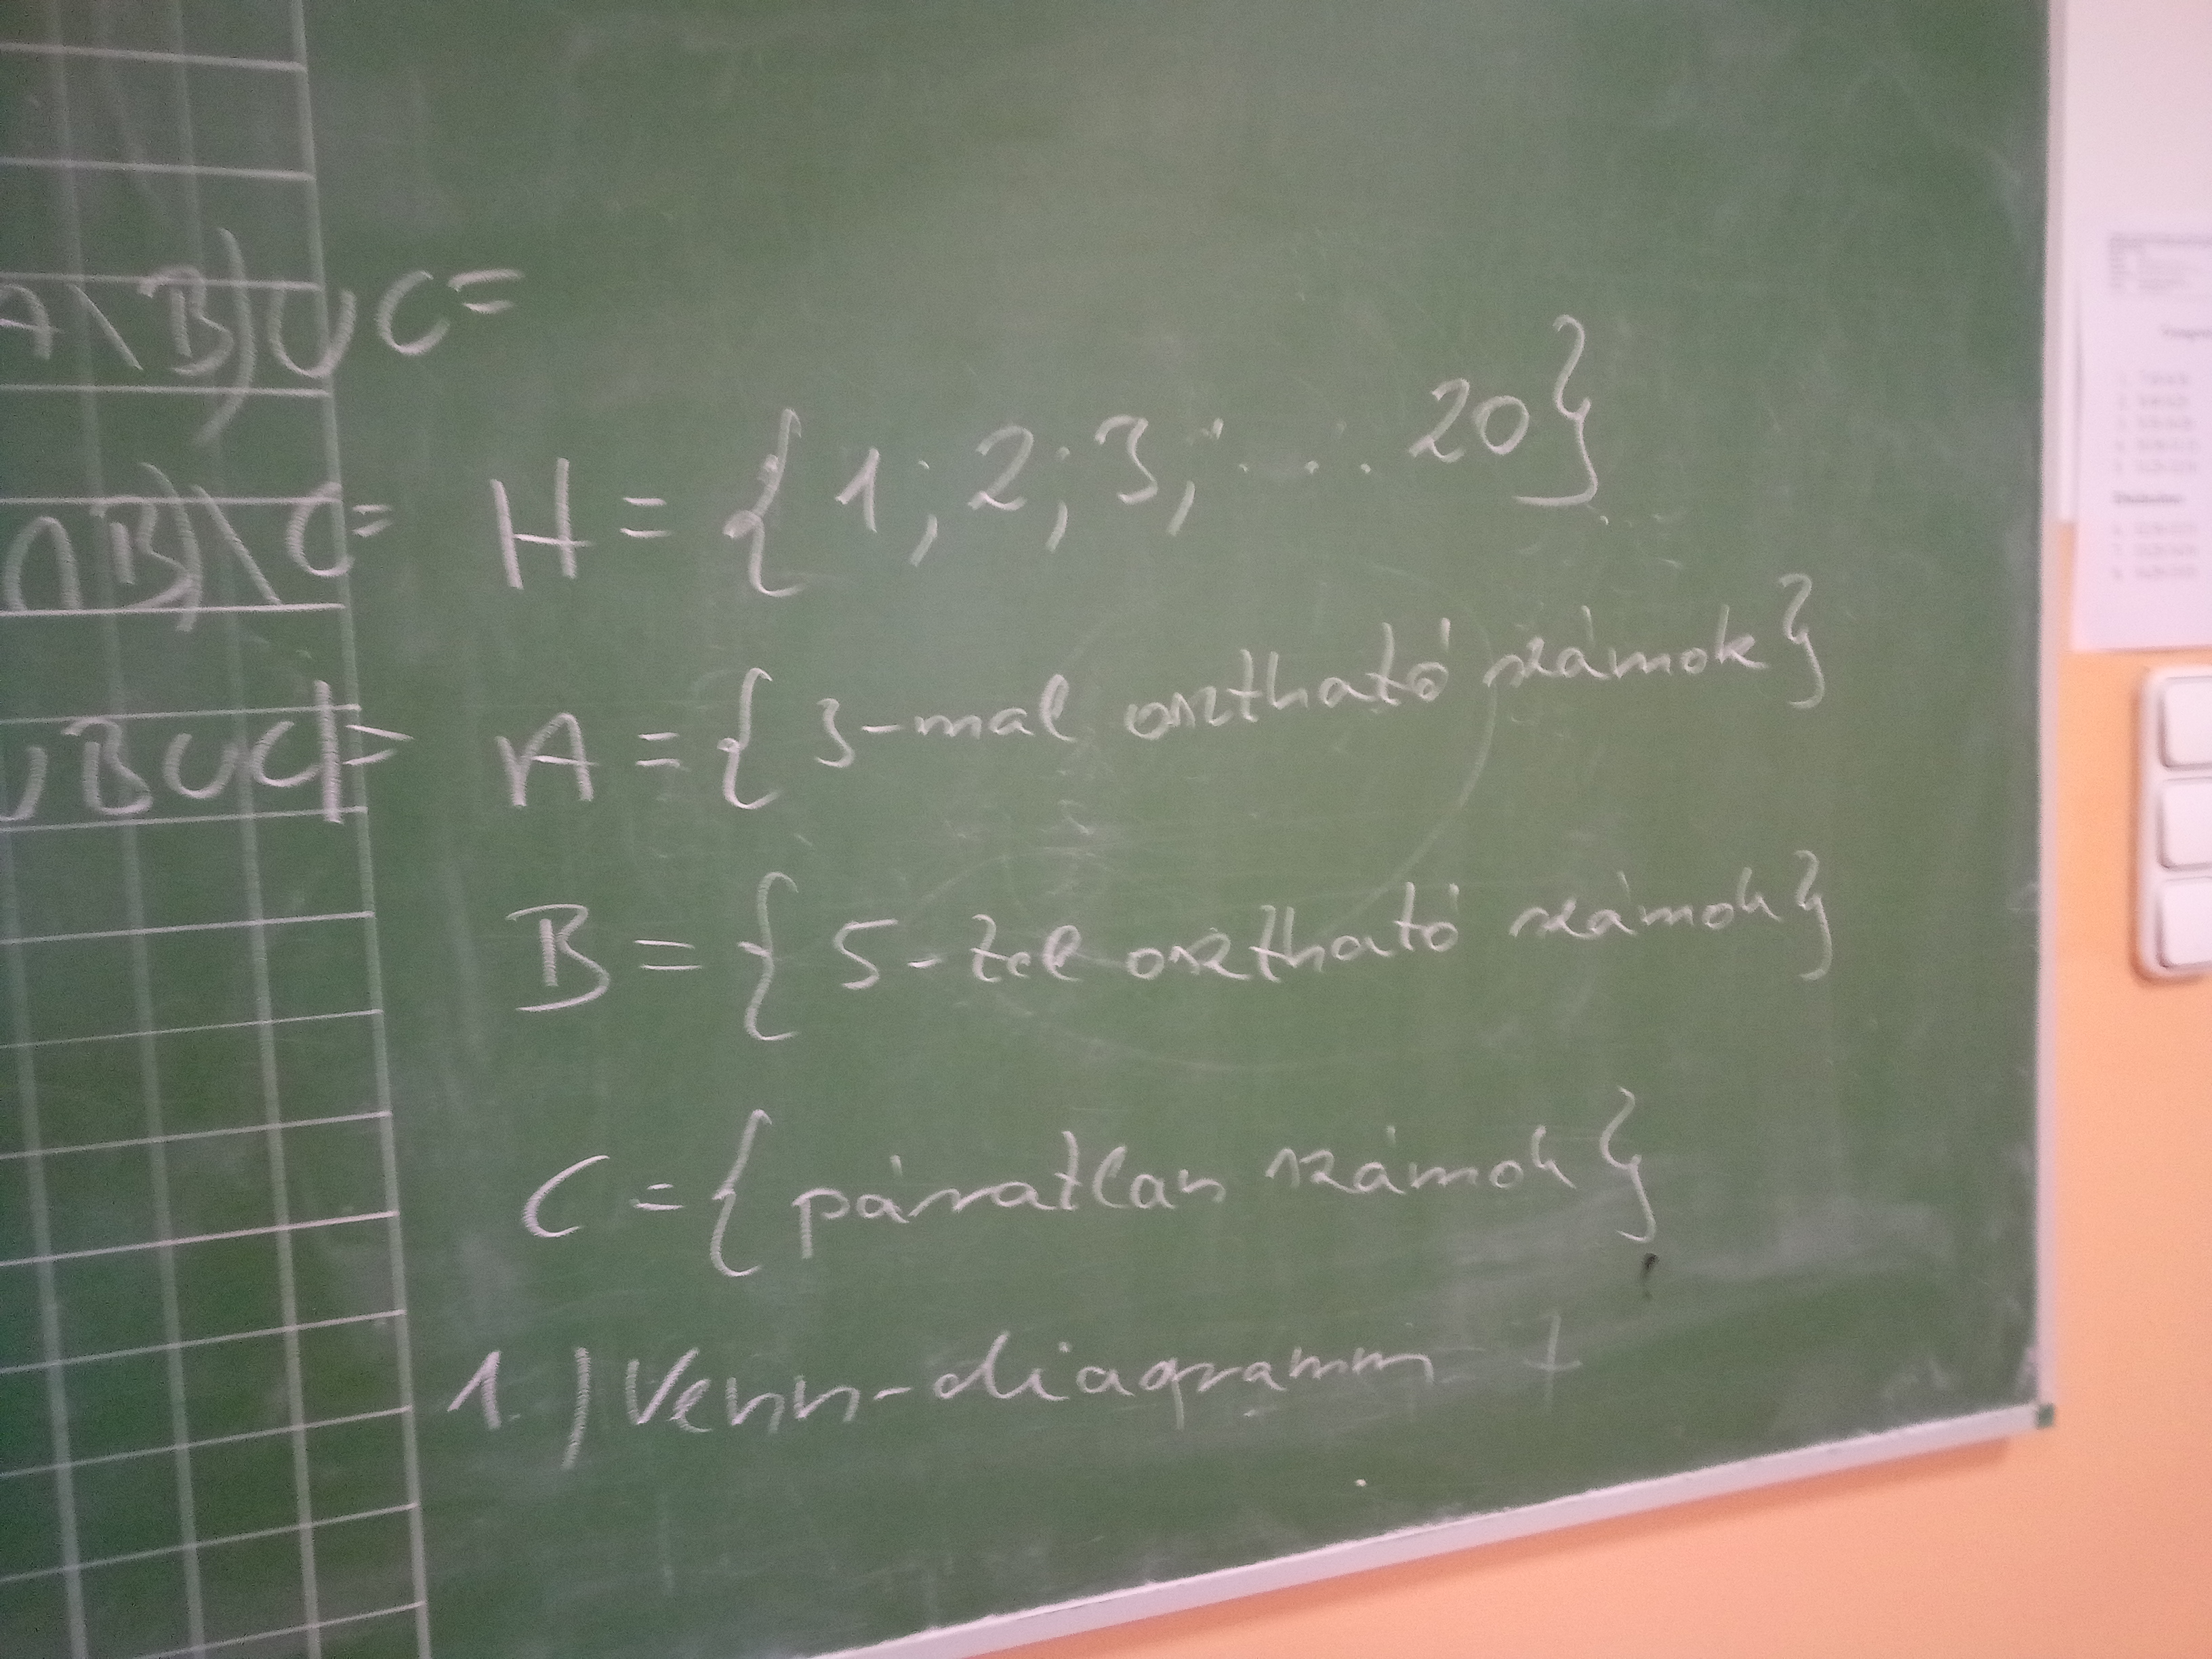 A\B)∪C=
∩B)\C=
∪B∪C|=
H = {1; 2; 3; ... 20}
A = {3-mal osztható számok}
B = {5-zel osztható számok}
C = {páratlan számok}
1.) Venn-diagramm +